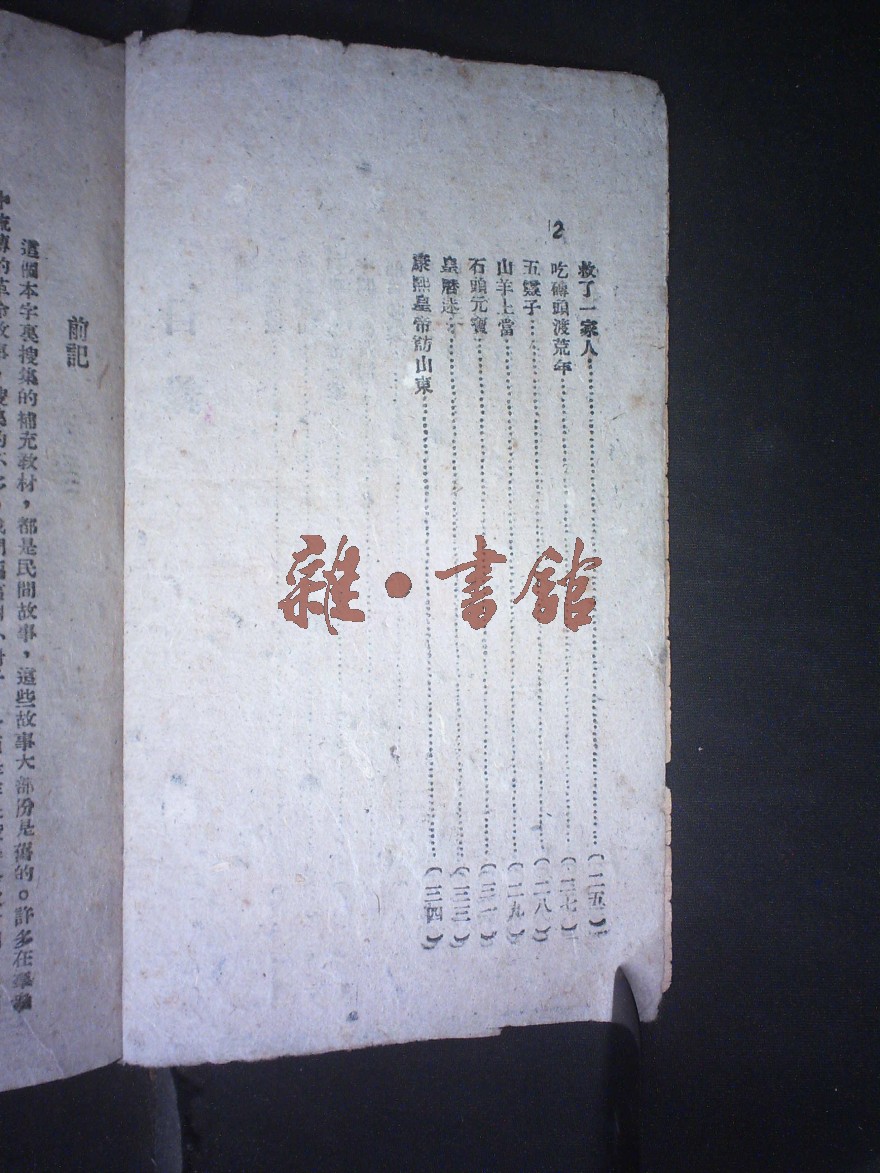 2
救了一家人（二五）
吃磚頭渡荒年（二七）
五靈子（二八）
山羊上當（二九）
石頭元寶（三一）
皇曆迷（三三）
康熙皇帝訪山東（三四）
雜·書館
前記
這個本字裏搜集的補充教材，都是民間故事，這些故事大部份是舊的。許多在羣衆
中流傳的革命故事，搜集的不多，我們